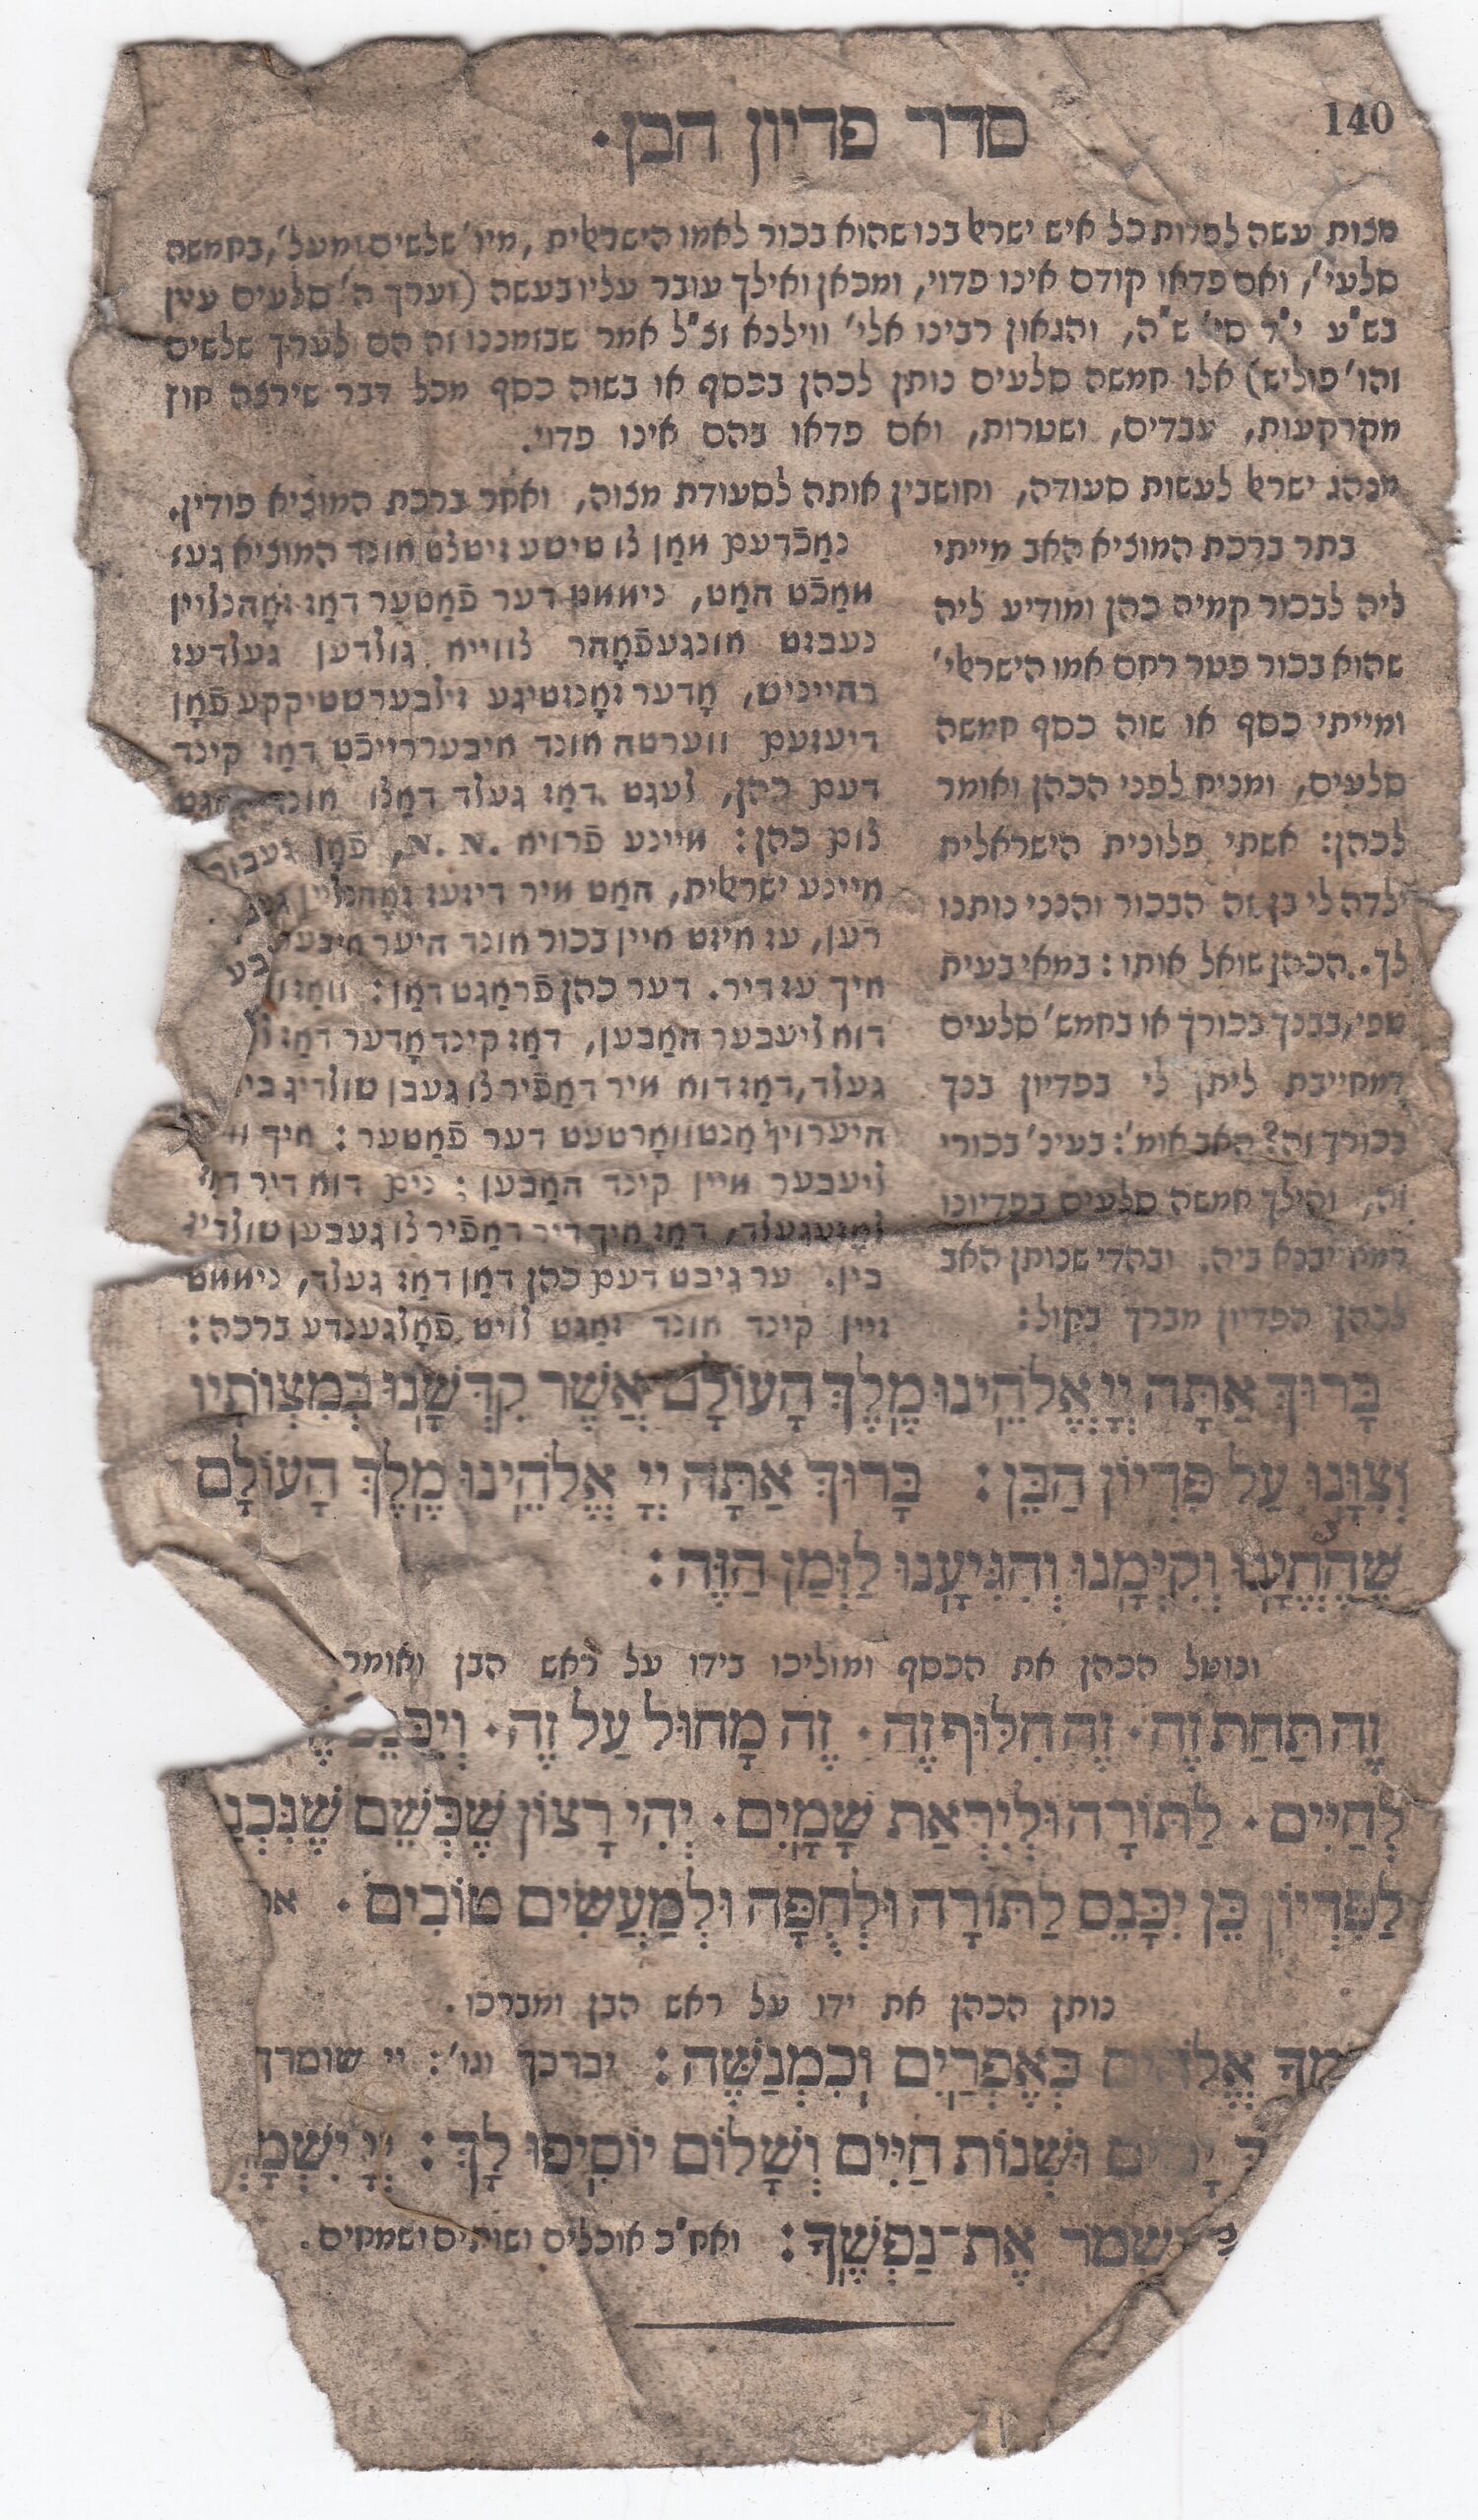 140
סדר פדיון הבן.
מצות עשה לפדות כל איש ישראל בנו שהוא בכור לאמו הישראלית, מיו' שלשים ומעל', בחמשה
סלעי', ואם פדאו קודם אינו פדוי, ומכאן ואילך עובר עליו בעשה (וערך ה' סלעים עיין
בש"ע י"ד סי' ש"ה, והגאון רבינו אלי' ווילנא זצ"ל אמר שבזמננו זה הם לערך שלשים
זהו' פוליש) אלו חמשה סלעים נותן לכהן בכסף או בשוה כסף מכל דבר שירצה חוץ
מקרקעות, עבדים, ושטרות, ואם פדאו בהם אינו פדוי.
מנהג ישראל לעשות סעודה, וחושבין אותה לסעודת מצוה, ואחר ברכת המוציא פודין.
בתר ברכת המוציא האב מייתי
ליה לבכור קמיה כהן ומודיע ליה
שהוא בכור פטר רחם אמו הישראלי'
ומייתי כסף או שוה כסף חמשה
סלעים, ומניח לפני הכהן ואומר
לכהן: אשתי פלונית הישראלית
ילדה לי בן זה הבכור והנני נותנו
לך. הכהן שואל אותו: במאי בעית
טפי, בבנך בכורך או בחמש' סלעים
דמחייבת ליתן לי בפדיון בנך
בכורך זה? האב אומ': בעינ' בכורי
זה, והילך חמשה סלעים בפדיונו
ובהדי שנותן האב
לכהן הפדיון מברך בקול:
נאַכֿדעם מאַן צו טישע זיטצט אונד המוציא געז
מאַכֿט האַט, ניממט דער פֿאַטער דאַז זאָהנליין
נעבזט אונגעפֿאָהר צווייא גולדען געלדעז
רהייניש, אָדער זאָנזטיגע זילבערשטיקקע פֿאָן
דיעזעם ווערטה אונד איבעררייכֿט דאַז קינד
דעם כהן, לעגט דאַז געלד דאַצו אונד
צום כהן: מיינע פֿרויא .N .N, פֿאָן געבור
איינע ישראלית, האַט מיר דיזעז זאָהנליין
רען, עז איזט איין בכור אונד היער איבער
איך עז דיר. דער כהן פֿראַגט דאַן:
דוא ליעבער האַבען, דאַז קינד אָדער דאַז
געלד, דאַז דוא מיר דאַפֿיר צו געבן שולדיג
היערויף אַנטוואָרטעט דער פֿאַטער: איך
ליעבער מיין קינד האַבען: נים דוא דיר
דאַז איך דיר דאַפֿיר צו געבען שולדיג
בין. ער גיבט דעם כהן דאַן דאַז געלד, ניממט
זיין קינד אונד זאַגט לויט פֿאָלגענדע ברכה:
בָּרוּךְ אַתָּה יְיָ אֱלֹהֵינוּ מֶלֶךְ הָעוֹלָם אֲשֶׁר קִדְּשָׁנוּ בְּמִצְוֹתָיו
וְצִוָּנוּ עַל פִּדְיוֹן הַבֵּן: בָּרוּךְ אַתָּה יְיָ אֱלֹהֵינוּ מֶלֶךְ הָעוֹלָם
שֶׁהֶחֱיָנוּ וְקִיְּמָנוּ וְהִגִּיעָנוּ לַזְּמַן הַזֶּה:
ונוטל הכהן את הכסף ומוליכו בידו על ראש הבן ואומר
זֶה תַּחַת זֶה. זֶה חִלּוּף זֶה. זֶה מָחוּל עַל זֶה.
לְחַיִּים. לַתּוֹרָה וּלְיִרְאַת שָׁמַיִם. יְהִי רָצוֹן שֶׁכְּשֵׁם
לַפִּדְיוֹן כֵּן יִכָּנֵס לַתּוֹרָה וּלְחֻפָּה וּלְמַעֲשִׂים טוֹבִים.
נותן הכהן את ידו על ראש הבן ומברכו.
אֱלֹהִים כְּאֶפְרַיִם וְכִמְנַשֶּׁה: יברכך וגו': יי שומרך
יָמִים וּשְׁנוֹת חַיִּים וְשָׁלוֹם יוֹסִיפוּ לָךְ: יְיָ
אֶת־נַפְשֶׁךָ: ואח"כ אוכלים ושותים ושמחים.